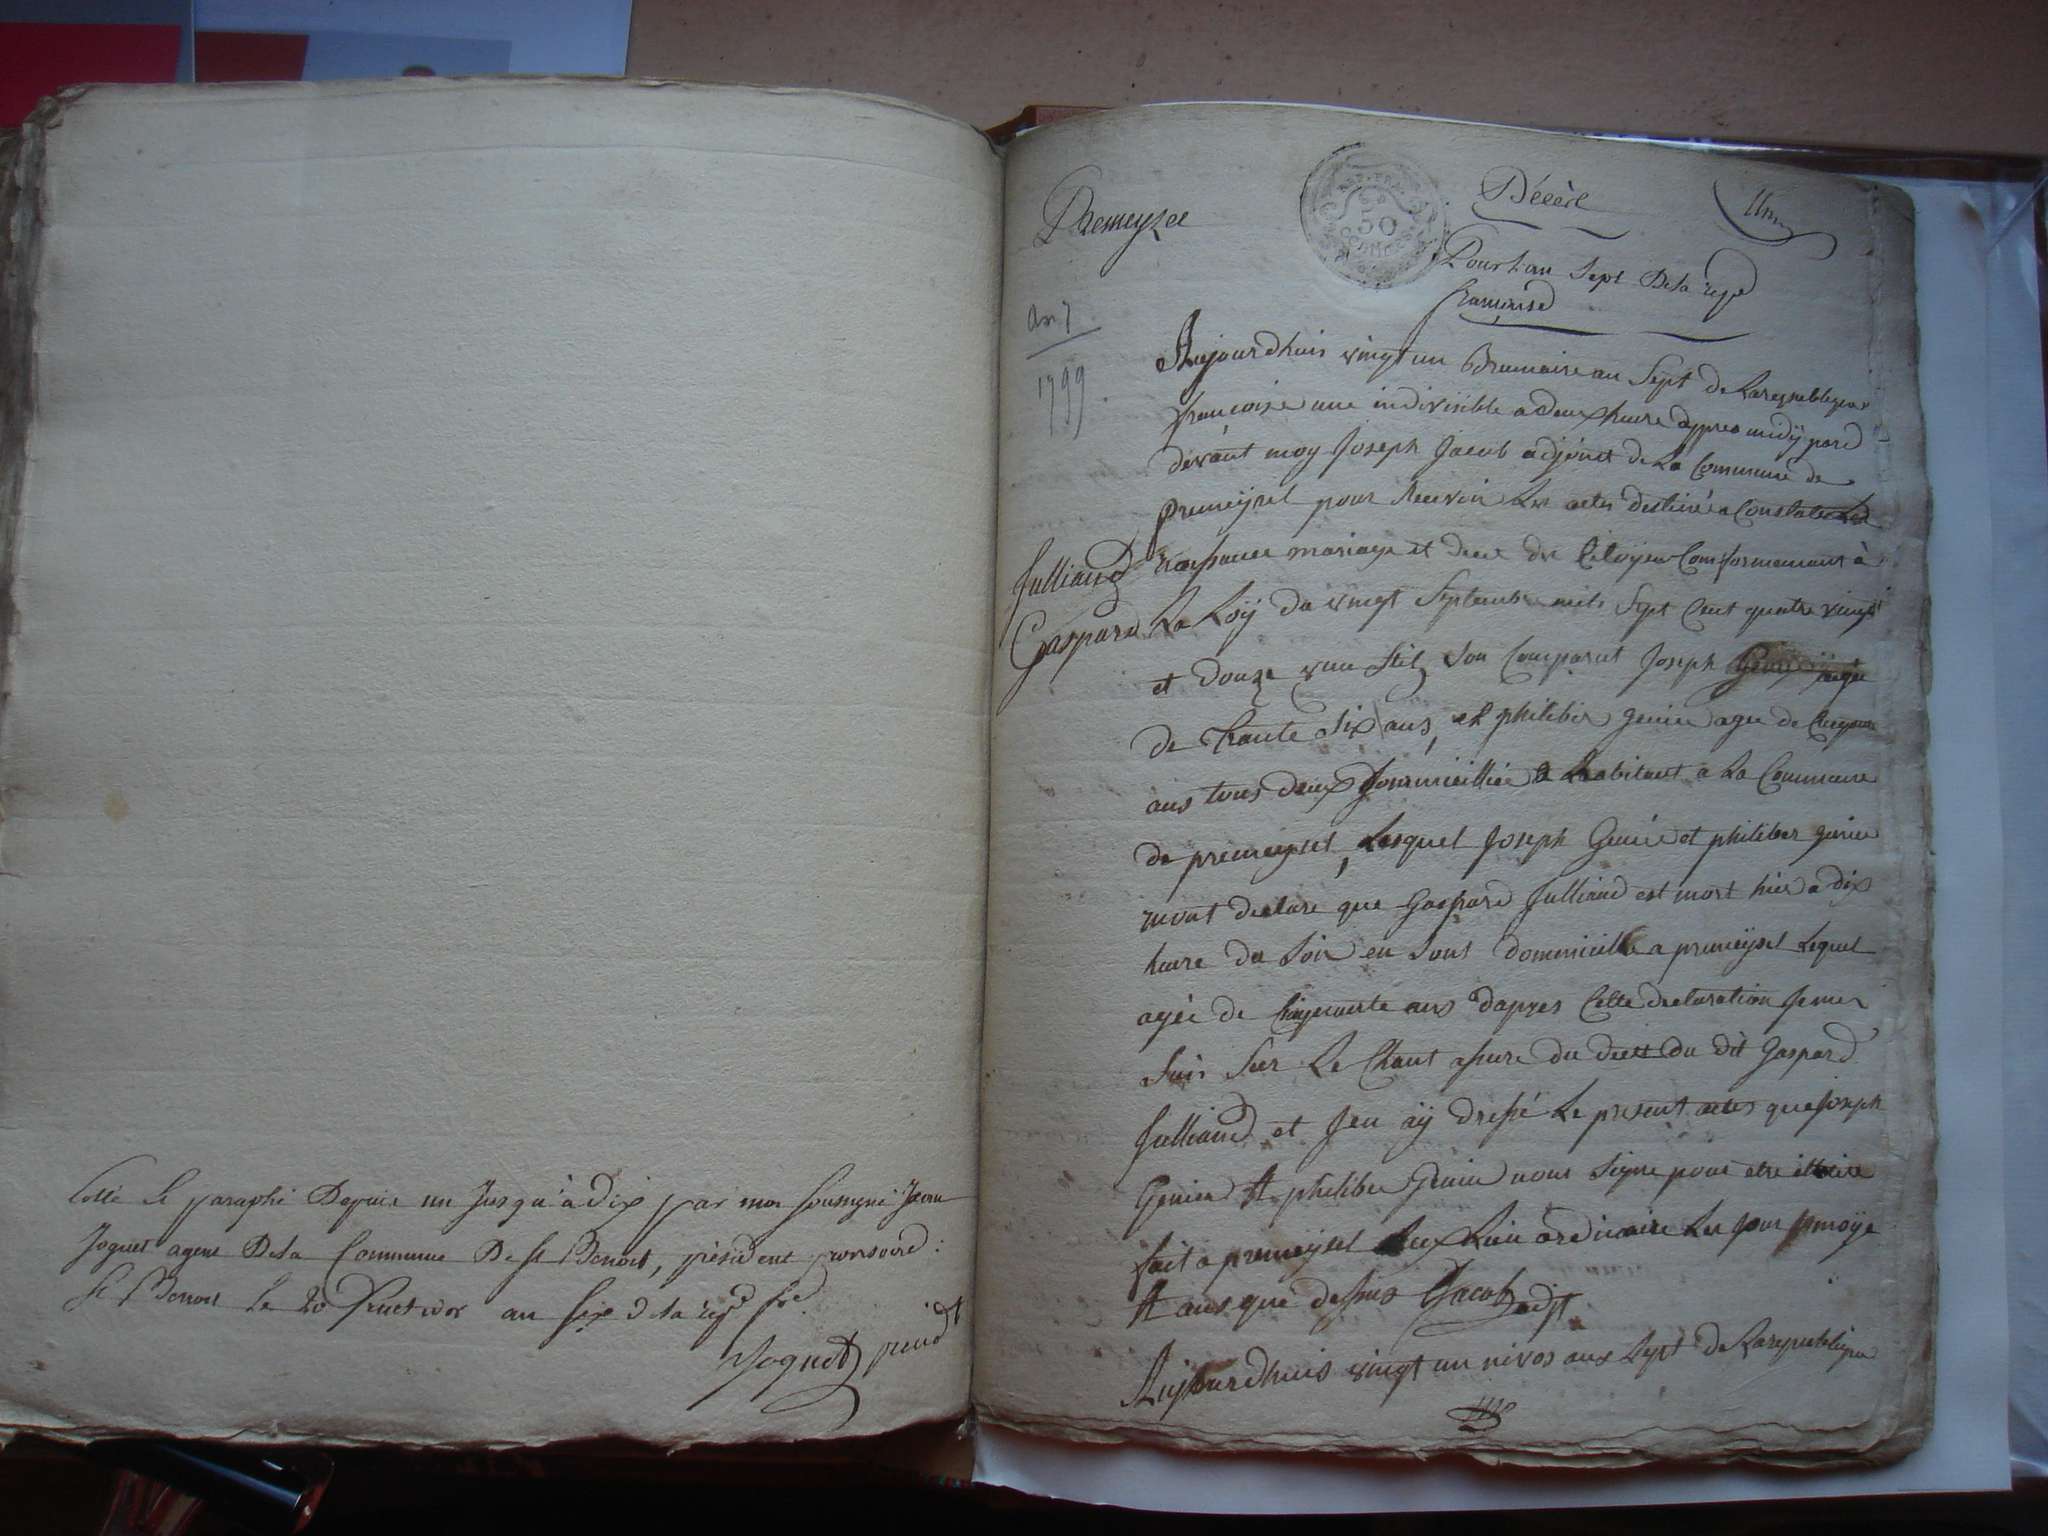 Cotté et paraphé Depuis un Jusqu'à dix par moi soussigné Jean
Joguet agent De la Commune De St Benoit, président provisoire
St Benoit le 20 fructidor an six d la rep fse
Joguet presdt
Premeyzel
Décès
Un
REP. FRA.
50
CENTMES
Pour l'an Sept De la repe
francaise
An 7
1799
Aujourdhuis vingt un Brumaire an Sept de La republique
francoise une indivisible a deux heure appres midÿ pard
devant moy Joseph Jacob adjoint de La Commune de
premeÿsel pour Recevoir Les actes destiné a Constater Les
Julliand
naissance mariage et deces des Citoÿen Conformement à
Gaspard
La Loÿ du vingt Septembre mils Sept Cent quatre vingt
et douze vieu Stil, Son Comparut Joseph Genin agee
de trante Six ans, et philiber genin agee de Cinquante
ans tous deux Dommicilliée & Labitant a La Commune
de premeysel, Lesquel Joseph Genin et philiber genin
mont declare que Gaspard Julliand est mort hier a dix
heure du Soir en Sont dommicille a premeÿsel Lequel
agée de Cinquante ans dapres Cette declaration Je me
Suis Sur Le Chant assure du deces du dit Gaspard
Julliand et Jen aÿ dressé Le present actes que Joseph
Genin et philiber Genin nont Signe pour etre
fait a premeysel Lieu ordinaire Les Jour mois
et ans que dessus Jacob adjt
Aujourdhuis vingt un nivos aux Sept de La republique